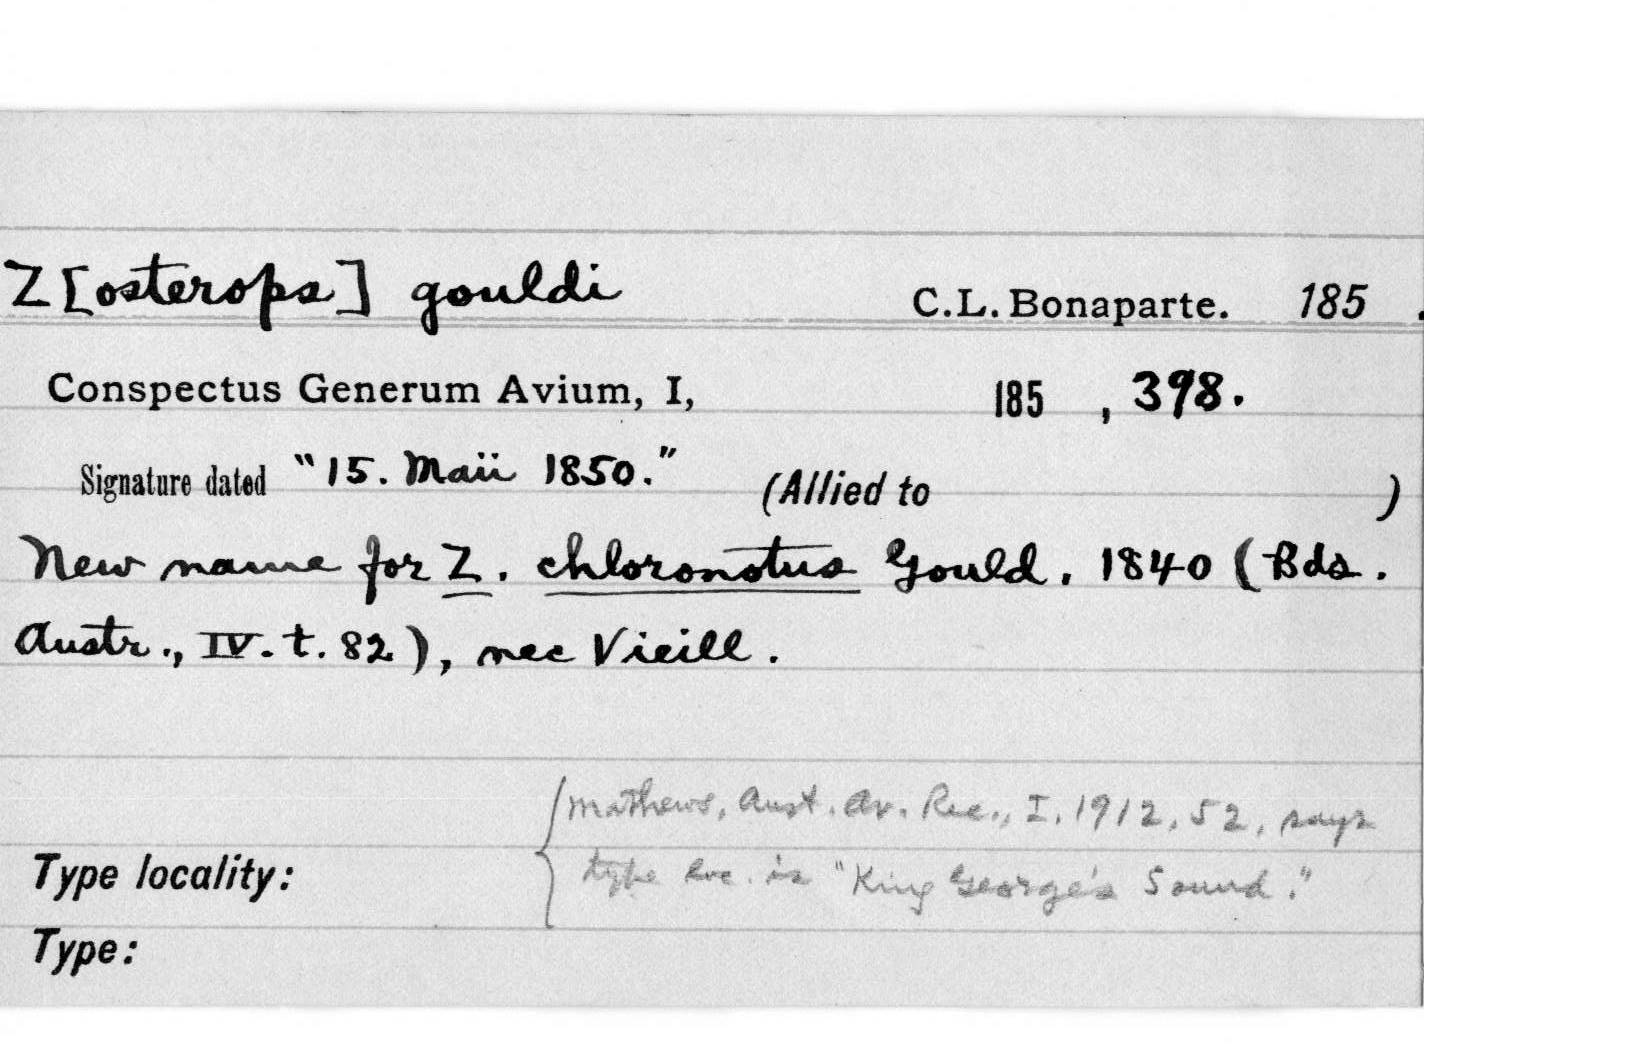 Z[osterops] gouldi C.L. Bonaparte. 185 .
Conspectus Generum Avium, I, 185 , 398.
Signature dated "15. Maii 1850." (Allied to )
New name for Z. chloronotus Gould, 1840 (Bds.
Austr., IV. t. 82), nec Vieill.
Mathews, Aust. Av. Rec., I, 1912, 52, says
Type locality: type loc. is "King George's Sound."
Type: